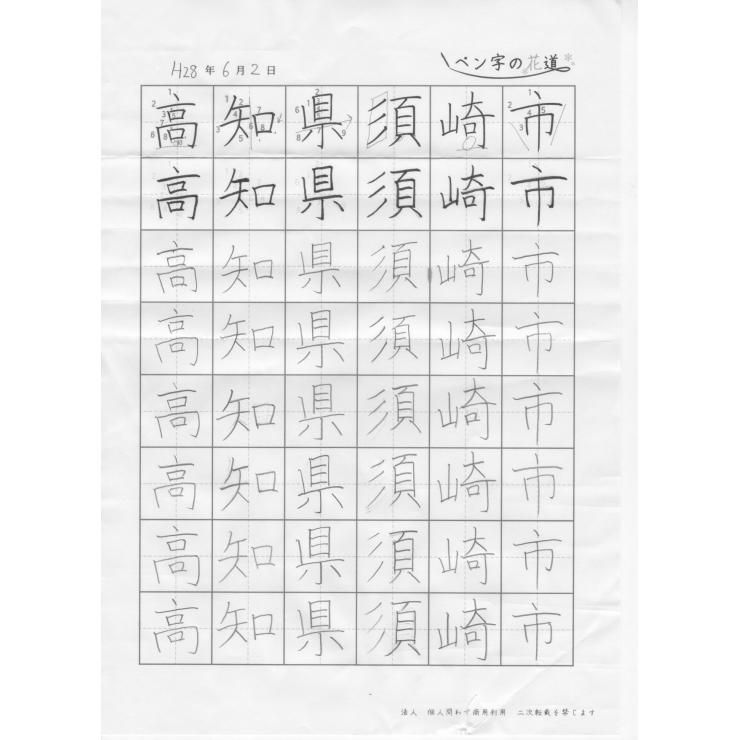 H28年6月2日
ペン字の花道
高知県須崎市
高知県須崎市
高知県須崎市
高知県須崎市
高知県須崎市
高知県須崎市
高知県須崎市
高知県須崎市
法人 個人問わず商用利用 二次転載を禁じます